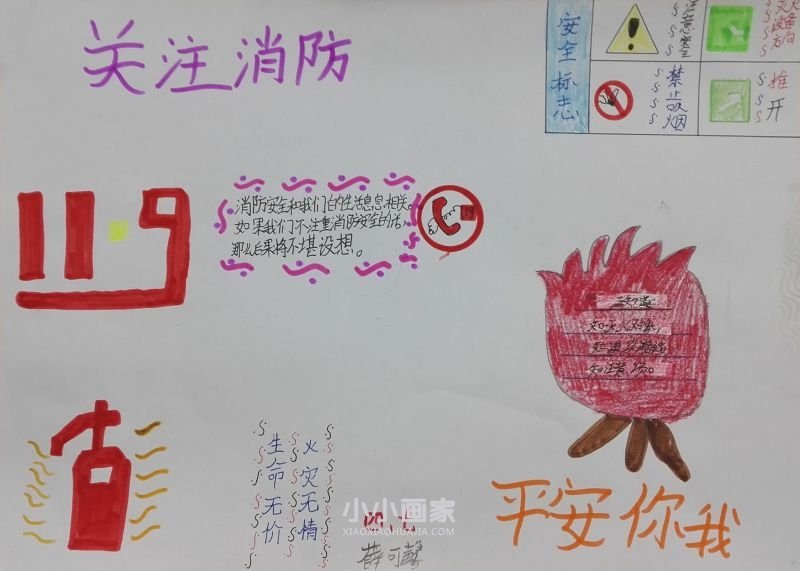 关注消防
安全标志
注意安全
灭火设备方向
禁止吸烟
推开
11.9
消防安全和我们的生活息息相关。
如果我们不注重消防安全的话，
那么后果将不堪设想。
119
三知道：
火灾无情
生命无价
平安你我
小小画家
XIAOXIAOHUAJIA.COM
薛可馨